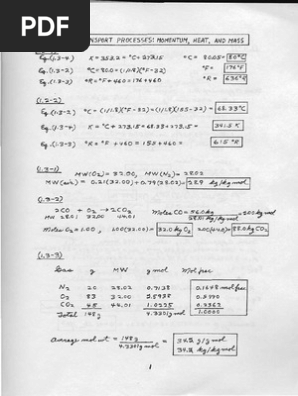 PDF
TRANSPORT PROCESSES: MOMENTUM, HEAT, AND MASS
Eq. (1.3-4) K = 353.2 = °C + 273.15 °C = 80.05 = 80°C
Eq. (1.3-2) °C = 80.0 = (1/1.8)(°F-32) °F = 176°F
Eq. (1.3-3) °R = °F + 460 = 176 + 460 °R = 636°R
(1.2-2)
Eq. (1.3-2) °C = (1/1.8)(°F-32) = (1/1.8)(155-32) = 68.33°C
Eq. (1.3-4) K = °C + 273.15 = 68.33 + 273.15 = 341.5 K
Eq. (1.3-3) °R = °F + 460 = 155 + 460 = 615 °R
(1.3-1) MW(O2) = 32.00, MW(N2) = 28.02
MW(air) = 0.21(32.00) + 0.79(28.02) = 28.9 kg/kg mol
(1.3-2)
2CO + O2 → 2CO2
MW 28.01 32.00 44.01
Moles CO = 56.0 kg / 28.01 kg/kg mol = 2.00 kg mol
Moles O2 = 1.00, 1.00(32.00) = 32.0 kg O2 2.00(44.01) = 88.0 kg CO2
(1.3-3)
Gas g MW g mol Mol frac
N2 20 28.02 0.7138 0.1648 mol frac
O2 83 32.00 2.5938 0.5990
CO2 45 44.01 1.0225 0.2362
Total 148 g 4.3301 g mol 1.0000
average mol wt = 148 g / 4.3301 g mol = 34.2 g/g mol
34.2 kg/kg mol
1